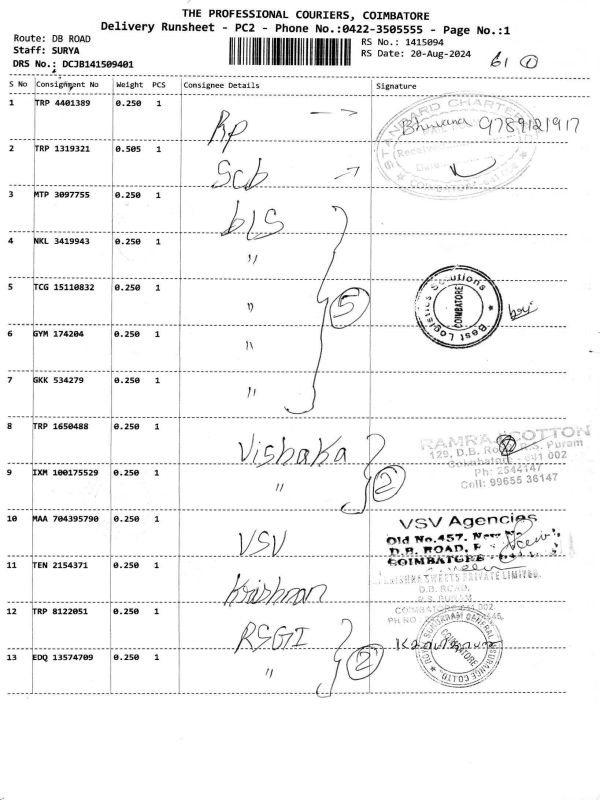 THE PROFESSIONAL COURIERS, COIMBATORE
Delivery Runsheet - PC2 - Phone No.:0422-3505555 - Page No.:1
Route: DB ROAD
Staff: SURYA
DRS No.: DCJB141509401
RS No.: 1415094
RS Date: 20-Aug-2024
61 ①
S No Consignment No Weight PCS Consignee Details Signature
1 TRP 4401389 0.250 1 Rp → STANDARD CHARTERED COIMBATORE Bhuvana 9789121917
2 TRP 1319321 0.505 1 Scb →
3 MTP 3097755 0.250 1 bLS
4 NKL 3419943 0.250 1 "
5 TCG 15110832 0.250 1 " ⑤ Best Logistics Solutions COIMBATORE
6 GYM 174204 0.250 1 "
7 GKK 534279 0.250 1 "
8 TRP 1650488 0.250 1 Vishaka RAMRAJ COTTON
129, D.B. Road, R.S. Puram
Coimbatore - 641 002
Ph: 2544147
Cell: 99655 36147
9 IXM 100175529 0.250 1 " ②
10 MAA 704395790 0.250 1 VSV VSV Agencies
Old No.457, New No
D.B. ROAD, R
COIMBATORE
11 TEN 2154371 0.250 1 Krishnan KRISHNA SWEETS PRIVATE LIMITED
D.B. ROAD,
R.S. PURAM,
COIMBATORE 641 002
PH NO
12 TRP 8122051 0.250 1 RSGI ROYAL SUNDARAM GENERAL INSURANCE CO LTD COIMBATORE
13 EDQ 13574709 0.250 1 " ②